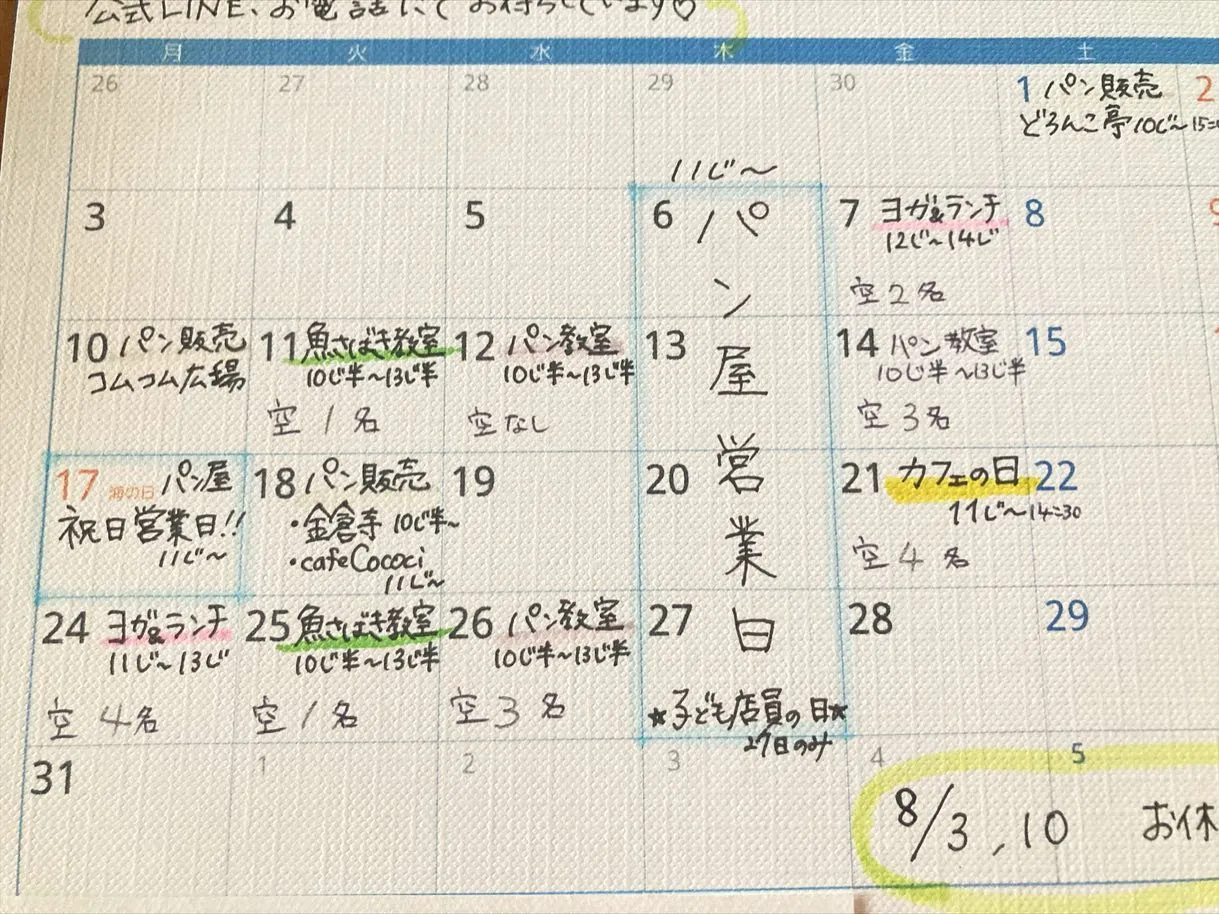 公式LINE、お電話にてお待ちしています♡
月 火 水 木 金 土
26 27 28 29 30 1 パン販売 2
どろんこ亭 10じ~15=
11じ~
3 4 5 6 7 ヨガ&ランチ 8
12じ~14じ
空2名
パン屋営業日
10 パン販売
コムコム広場
11 魚さばき教室
10じ半~13じ半
空1名
12 パン教室
10じ半~13じ半
空なし
13
14 パン教室
10じ半~13じ半
空3名
15
17 海の日 パン屋
祝日営業日!!
11じ~
18 パン販売
・金倉寺 10じ半~
・cafeCococi
11じ~
19
20
21 カフェの日
11じ~14=30
空4名
22
24 ヨガ&ランチ
11じ~13じ
空4名
25 魚さばき教室
10じ半~13じ半
空1名
26 パン教室
10じ半~13じ半
空3名
27
★子ども店員の日★
27日のみ
28
29
31 1 2 3 4 5
8/3,10 お休